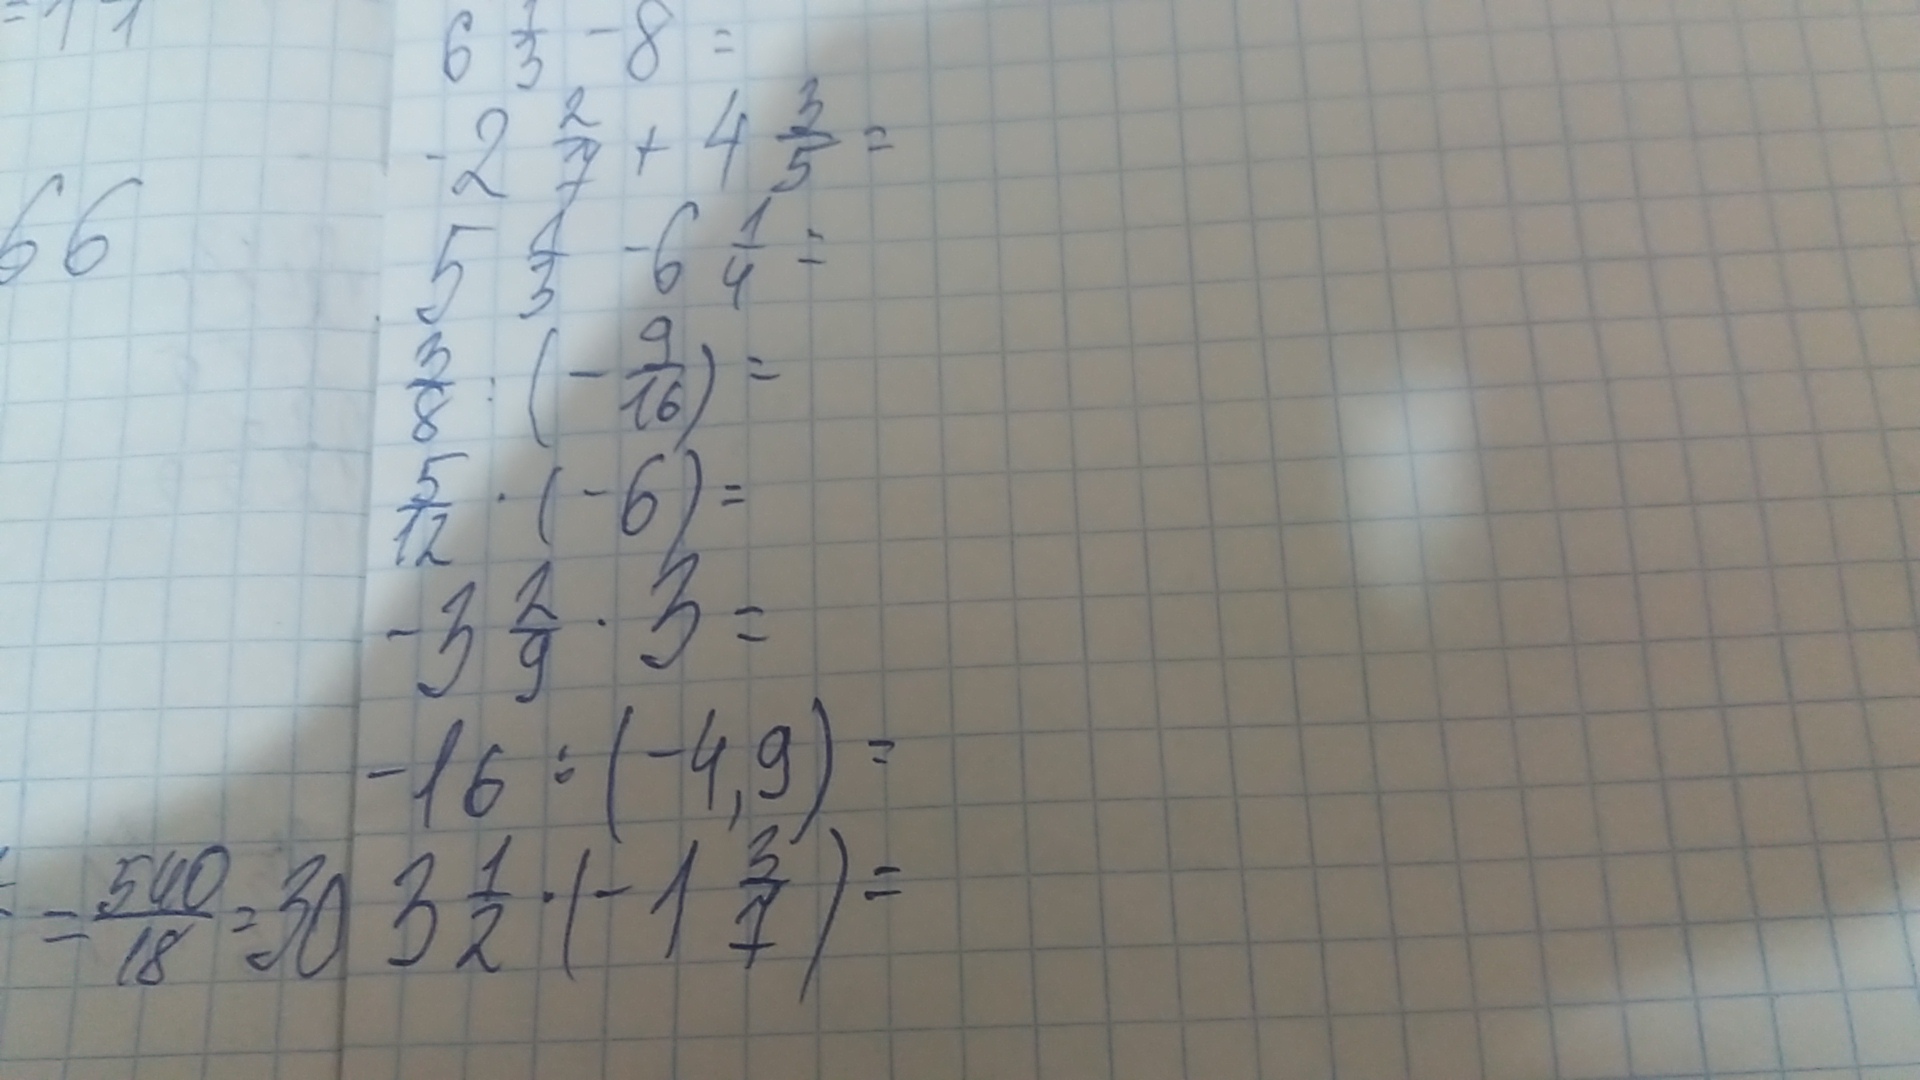 =11
66
6 1/3 - 8 =
-2 2/7 + 4 3/5 =
5 1/3 - 6 1/4 =
3/8 : (- 9/16) =
5/12 · (-6) =
-3 2/9 · 3 =
-16 : (-4,9) =
= 540/18 = 30
3 1/2 · (-1 3/7) =